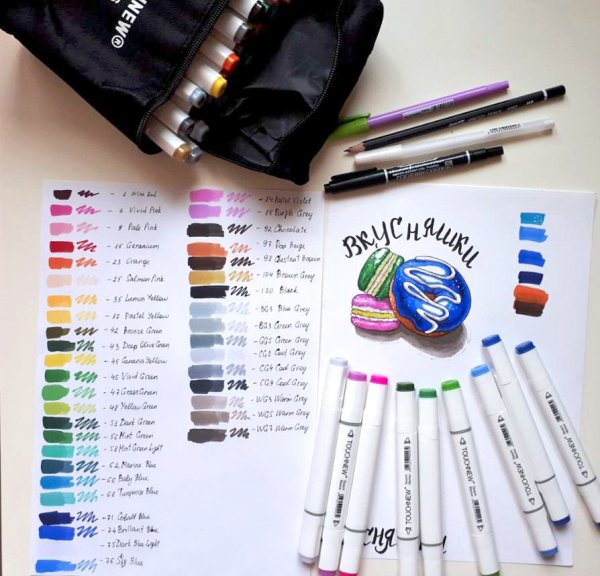 HNEW®
- 1 Wine Red
- 6 Vivid Pink
- 9 Pale Pink
- 15 Geranium
- 23 Orange
- 25 Salmon Pink
- 35 Lemon Yellow
- 37 Pastel Yellow
- 42 Bronze Green
- 43 Deep Olive Green
- 45 Canaria Yellow
- 46 Vivid Green
- 47 Grass Green
- 48 Yellow Green
- 51 Dark Green
- 56 Mint Green
- 58 Mint Green Light
- 62 Marine Blue
- 66 Baby Blue
- 68 Turquoise Blue
- 71 Cobalt Blue
- 74 Brilliant Blue
- 75 Dark Blue Light
- 76 Sky Blue
Pastel Violet
Purple Grey
- 92 Chocolate
- 97 Rose Beige
- 98 Chestnut Brown
- 104 Brown Grey
- 120 Black
- BG3 Blue Grey
- BG3 Green Grey
- GG5 Green Grey
- CG2 Cool Grey
- CG4 Cool Grey
- CG9 Cool Grey
- WG3 Warm Grey
- WG5 Warm Grey
- WG7 Warm Grey
ВКУСНЯШКИ
TOUCHNEW®
TOUCHNEW®
TOUCHNEW®
TOUCHNEW®
TOUCHNEW®
TOUCHNEW®